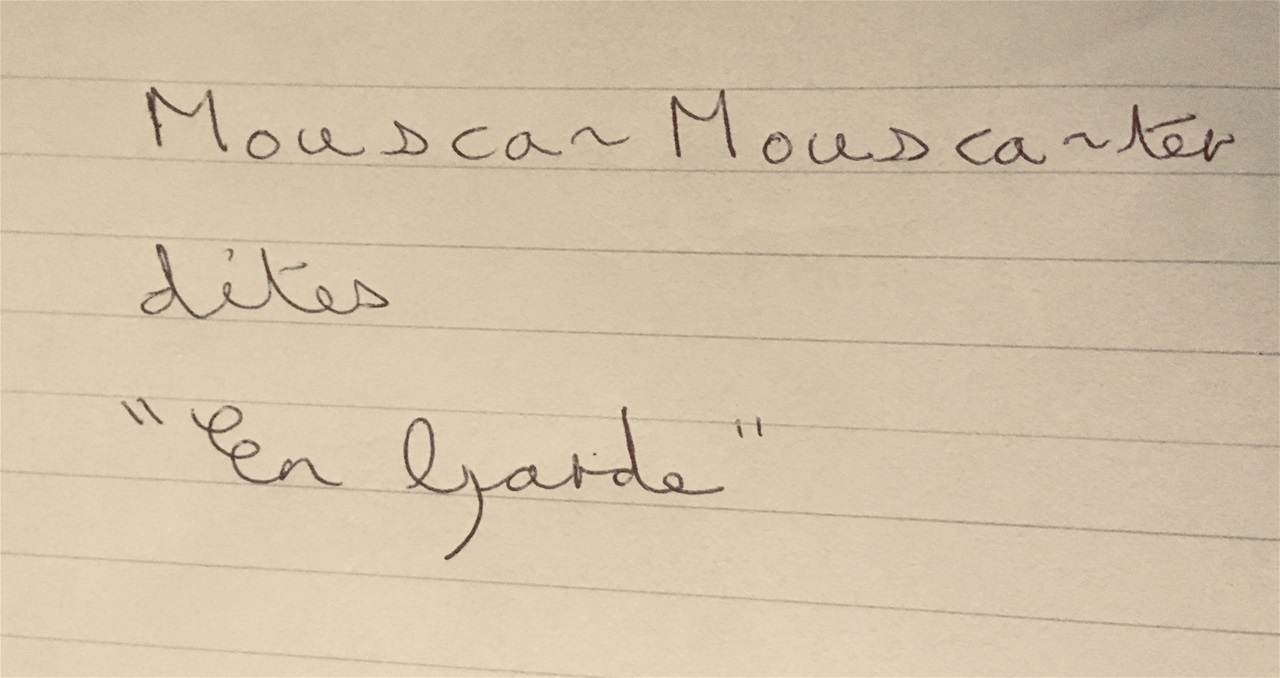 Mouscar Mouscarter
dites
"En Garde"